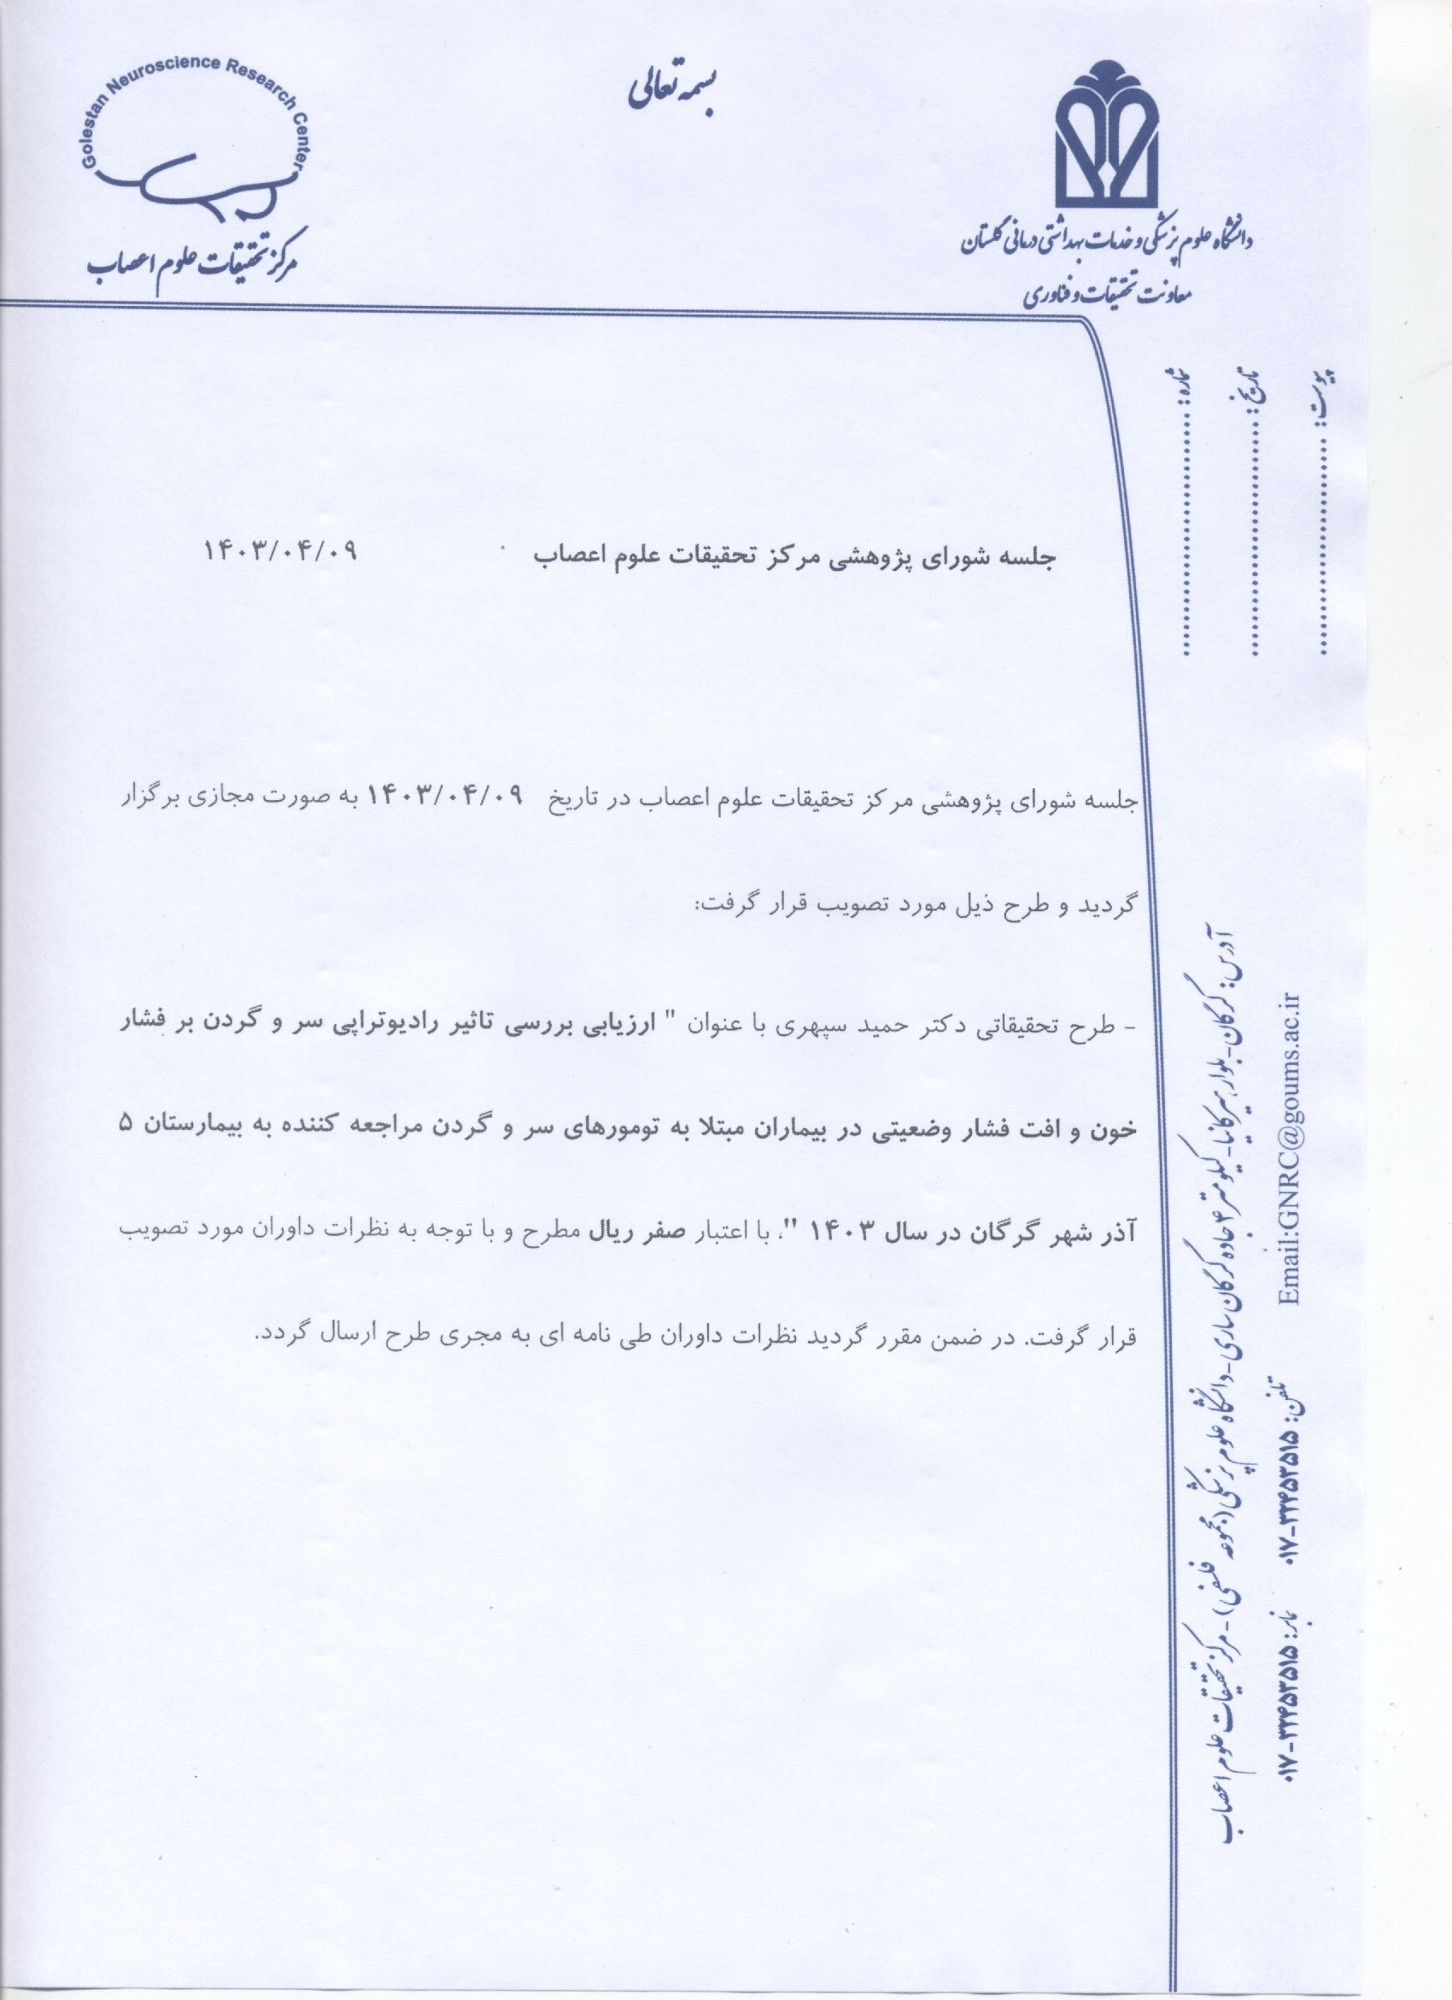 بسمه تعالی
دانشگاه علوم پزشکی و خدمات بهداشتی درمانی گلستان
معاونت تحقیقات و فناوری
Golestan Neuroscience Research Center
مرکز تحقیقات علوم اعصاب
شماره: ..............................
تاریخ: ..............................
پیوست: ..............................
جلسه شورای پژوهشی مرکز تحقیقات علوم اعصاب ۱۴۰۳/۰۴/۰۹
جلسه شورای پژوهشی مرکز تحقیقات علوم اعصاب در تاریخ ۱۴۰۳/۰۴/۰۹ به صورت مجازی برگزار
گردید و طرح ذیل مورد تصویب قرار گرفت:
- طرح تحقیقاتی دکتر حمید سپهری با عنوان " ارزیابی بررسی تاثیر رادیوتراپی سر و گردن بر فشار
خون و افت فشار وضعیتی در بیماران مبتلا به تومورهای سر و گردن مراجعه کننده به بیمارستان ۵
آذر شهر گرگان در سال ۱۴۰۳ "، با اعتبار صفر ریال مطرح و با توجه به نظرات داوران مورد تصویب
قرار گرفت. در ضمن مقرر گردید نظرات داوران طی نامه ای به مجری طرح ارسال گردد.
آدرس: گرگان-بلوار هیرکانیا-کیلومتر ۴ جاده گرگان ساری-دانشگاه علوم پزشکی (مجموعه فلسفی)-مرکز تحقیقات علوم اعصاب
Email:GNRC@goums.ac.ir
تلفن: ۰۱۷-۳۲۴۵۳۵۱۵
نمابر: ۰۱۷-۳۲۴۵۳۵۱۵